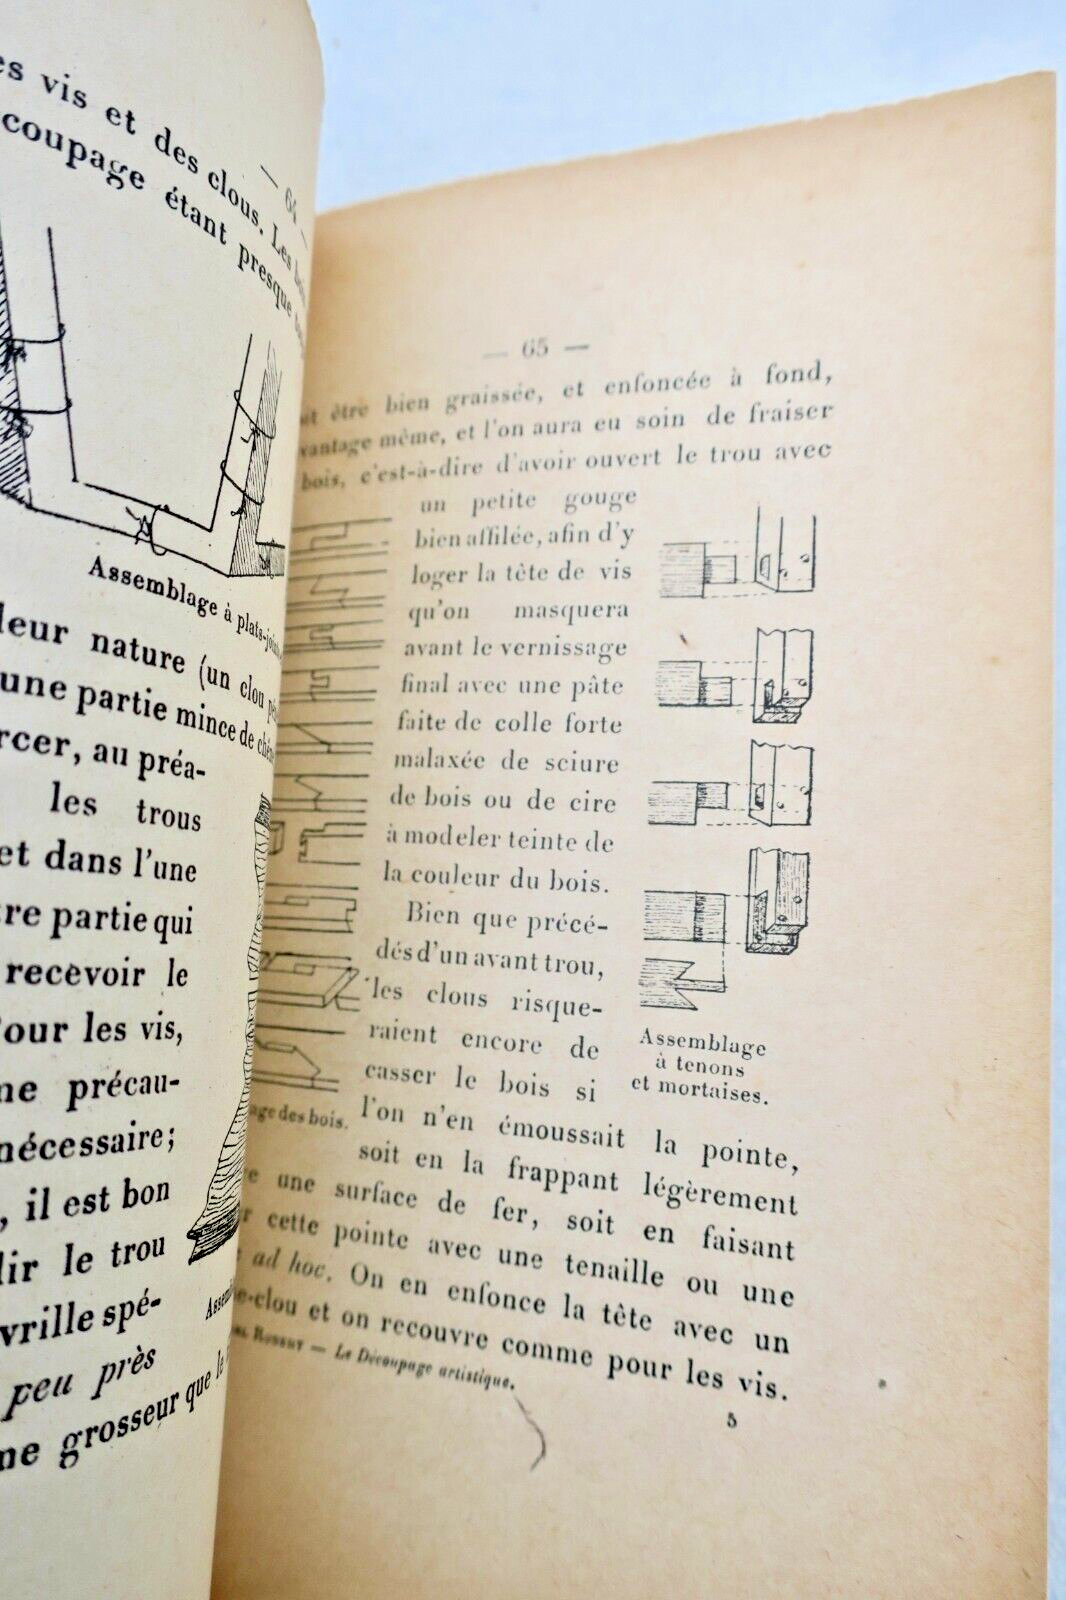 vis et des clous. Les
coupage étant presque
— 64 —
Assemblage à plats-joints
leur nature (un clou
une partie mince de
rcer, au préa-
les trous
et dans l'une
tre partie qui
recevoir le
Pour les vis,
ne précau-
nécessaire;
, il est bon
dir le trou
vrille spé-
peu près
ne grosseur que le
— 65 —
être bien graissée, et enfoncée à fond,
vantage même, et l'on aura eu soin de fraiser
bois, c'est-à-dire d'avoir ouvert le trou avec
un petite gouge
bien affilée, afin d'y
loger la tête de vis
qu'on masquera
avant le vernissage
final avec une pâte
faite de colle forte
malaxée de sciure
de bois ou de cire
à modeler teinte de
la couleur du bois.
Bien que précé-
dés d'un avant trou,
les clous risque-
raient encore de
casser le bois si
l'on n'en émoussait la pointe,
soit en la frappant légèrement
une surface de fer, soit en faisant
cette pointe avec une tenaille ou une
ad hoc. On en enfonce la tête avec un
e-clou et on recouvre comme pour les vis.
age des bois.
Assemblage
à tenons
et mortaises.
— Le Découpage artistique.
5